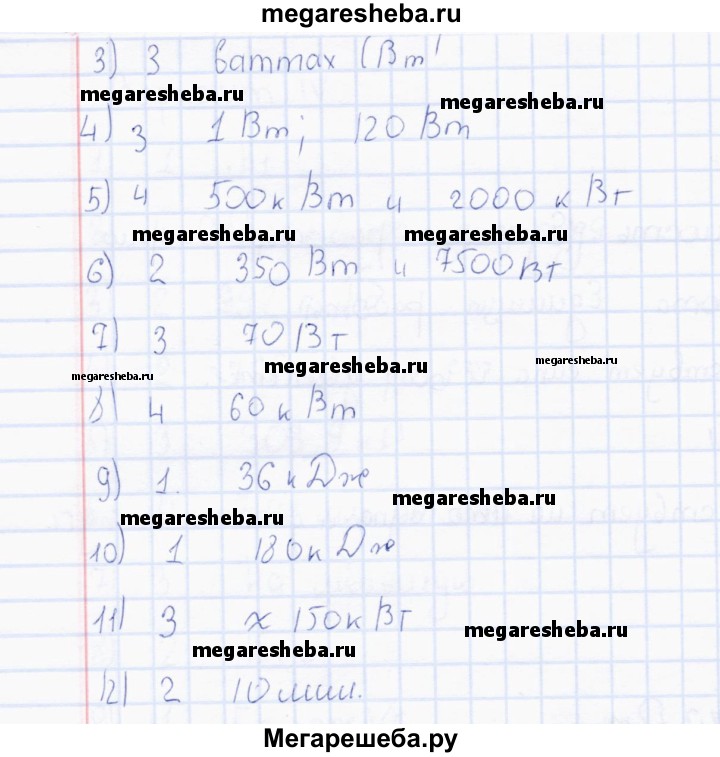 megaresheba.ru
3) 3 ваттах (Вт'
megaresheba.ru megaresheba.ru
4) 3 1 Вт; 120 Вт
5) 4 500к Вт и 2000 к Вт
megaresheba.ru megaresheba.ru
6) 2 350 Вт и 7500Вт
7) 3 70 Вт
megaresheba.ru megaresheba.ru
megaresheba.ru
8) 4 60 к Вт
9) 1. 36 кДж
megaresheba.ru
megaresheba.ru
10) 1 180к Дж
11) 3 х 150к Вт
megaresheba.ru
megaresheba.ru
12) 2 10 мин.
Мегарешеба.ру